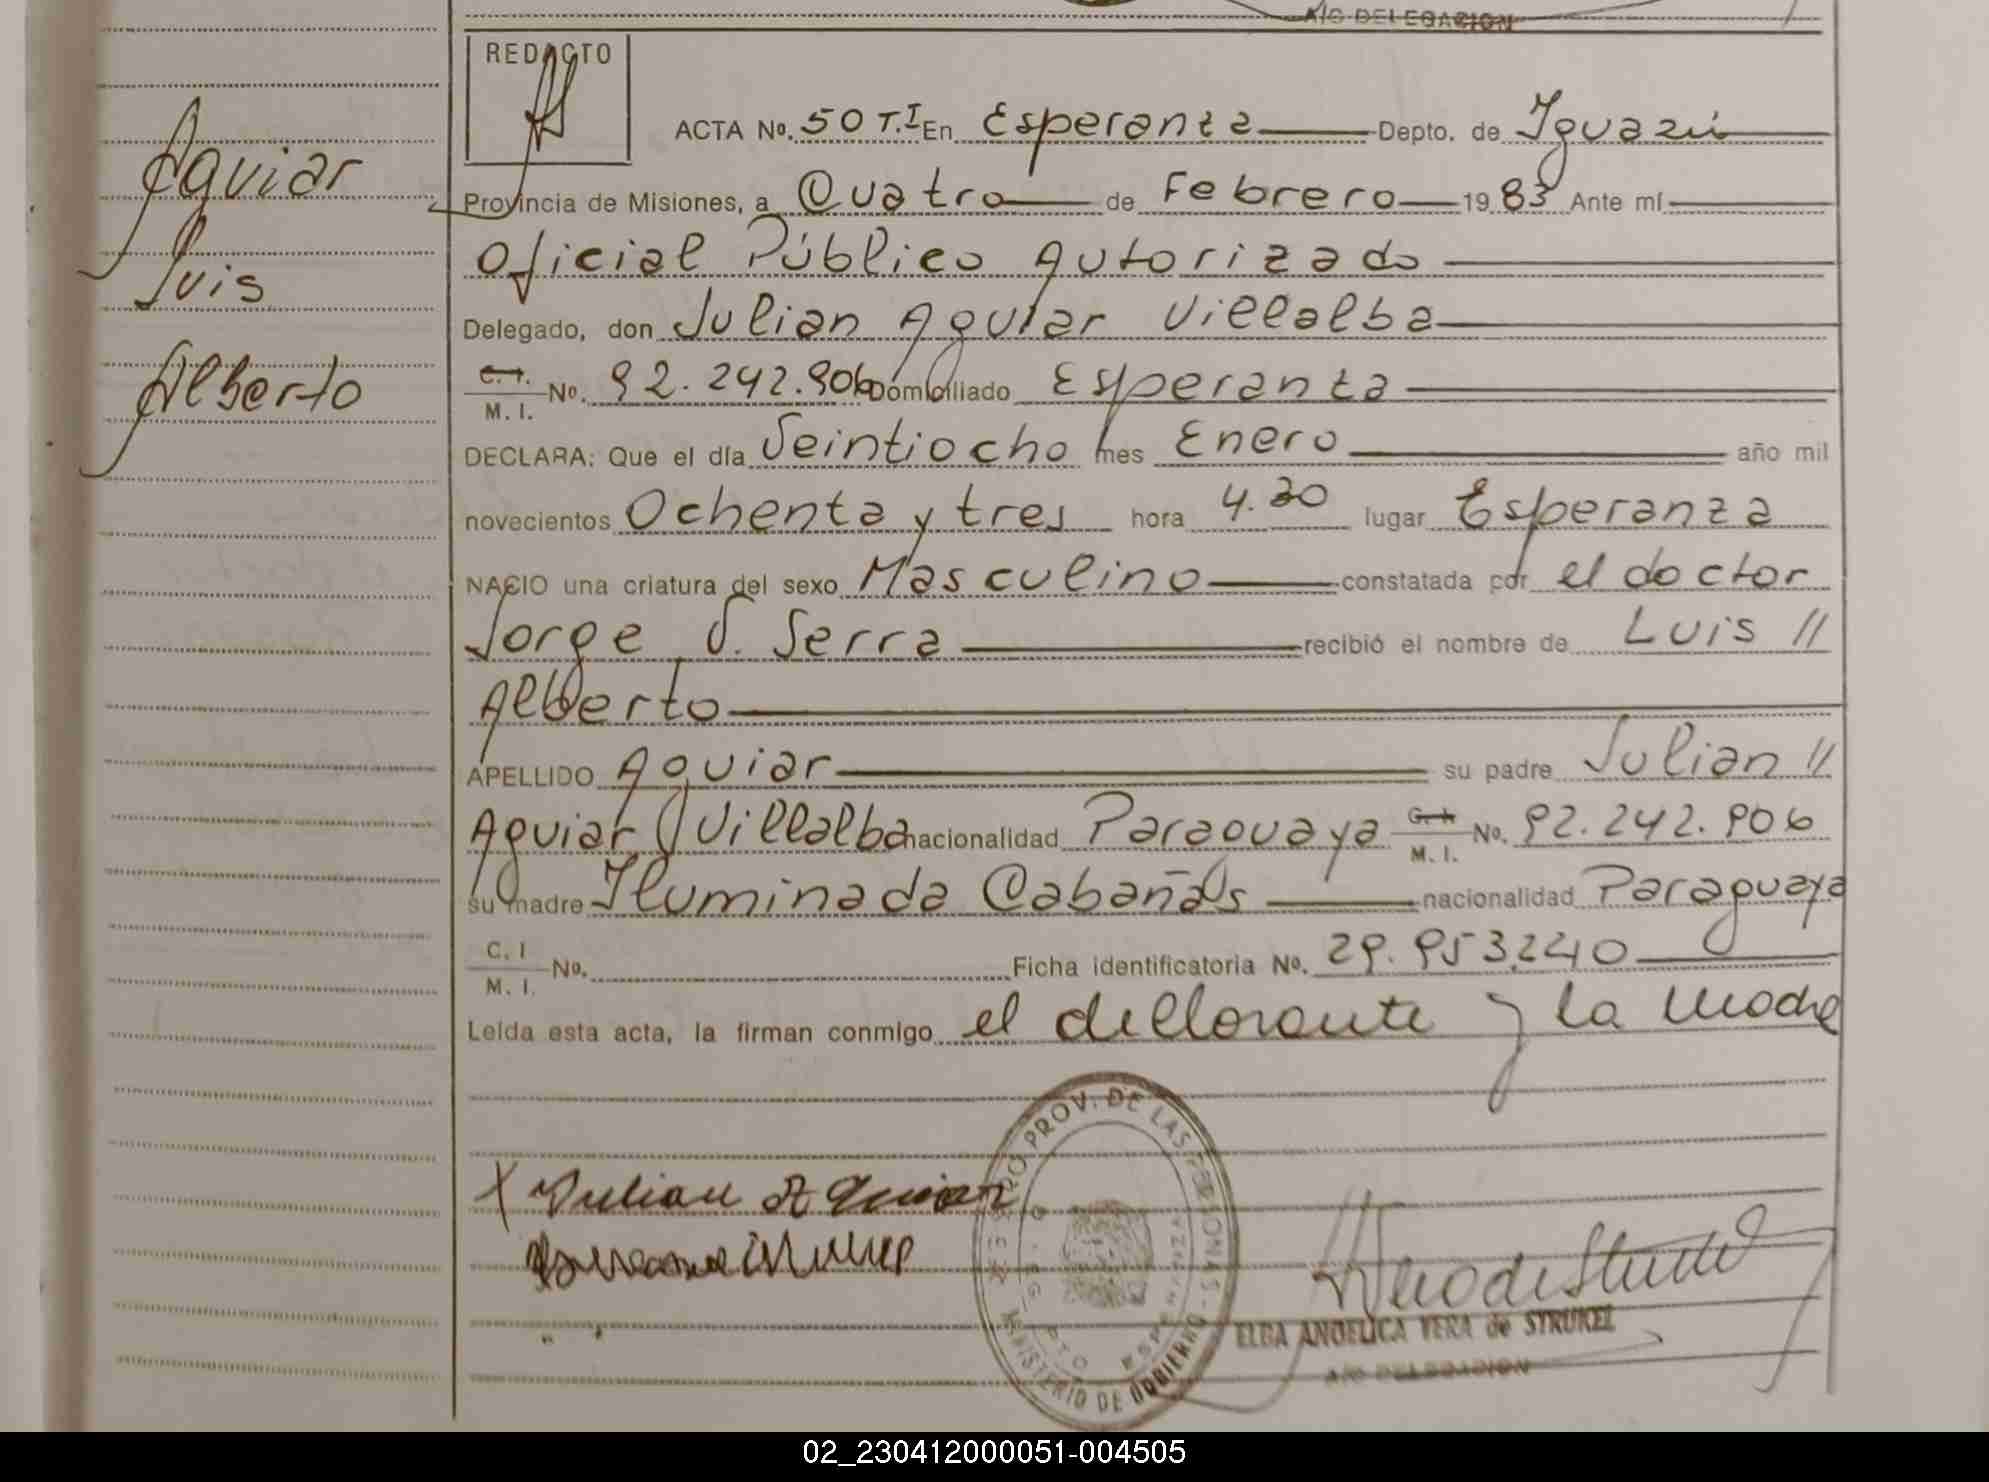 A/C DELEGACION
REDACTO
ACTA No. 50 T.I En Esperanza Depto. de Iguazú
Aguiar
Provincia de Misiones, a Cuatro de Febrero 1983 Ante mí
Oficial Público Autorizado
Luis
Delegado, don Julian Aguiar Villalba
C.I. M.I. No. 92.242.906 Domiciliado Esperanza
Alberto
DECLARA: Que el día Veintiocho mes Enero año mil
novecientos Ochenta y tres hora 4.30 lugar Esperanza
NACIO una criatura del sexo Masculino constatada por el doctor
Jorge V. Serra recibió el nombre de Luis //
Alberto
APELLIDO Aguiar su padre Julian //
Aguiar Villalba nacionalidad Paraguaya M.I. No. 92.242.906
su madre Iluminada Cabañas nacionalidad Paraguaya
C.I M.I. No. Ficha identificatoria No. 29.953.240
Leída esta acta, la firman conmigo el declarante y la madre
X Julian Aguiar
REGISTRO PROV. DE LAS PERSONAS - MINISTERIO DE GOBIERNO
ESPERANZA
ELBA ANGELICA VERA de STRUKEL
A/C DELEGACION
02_230412000051-004505